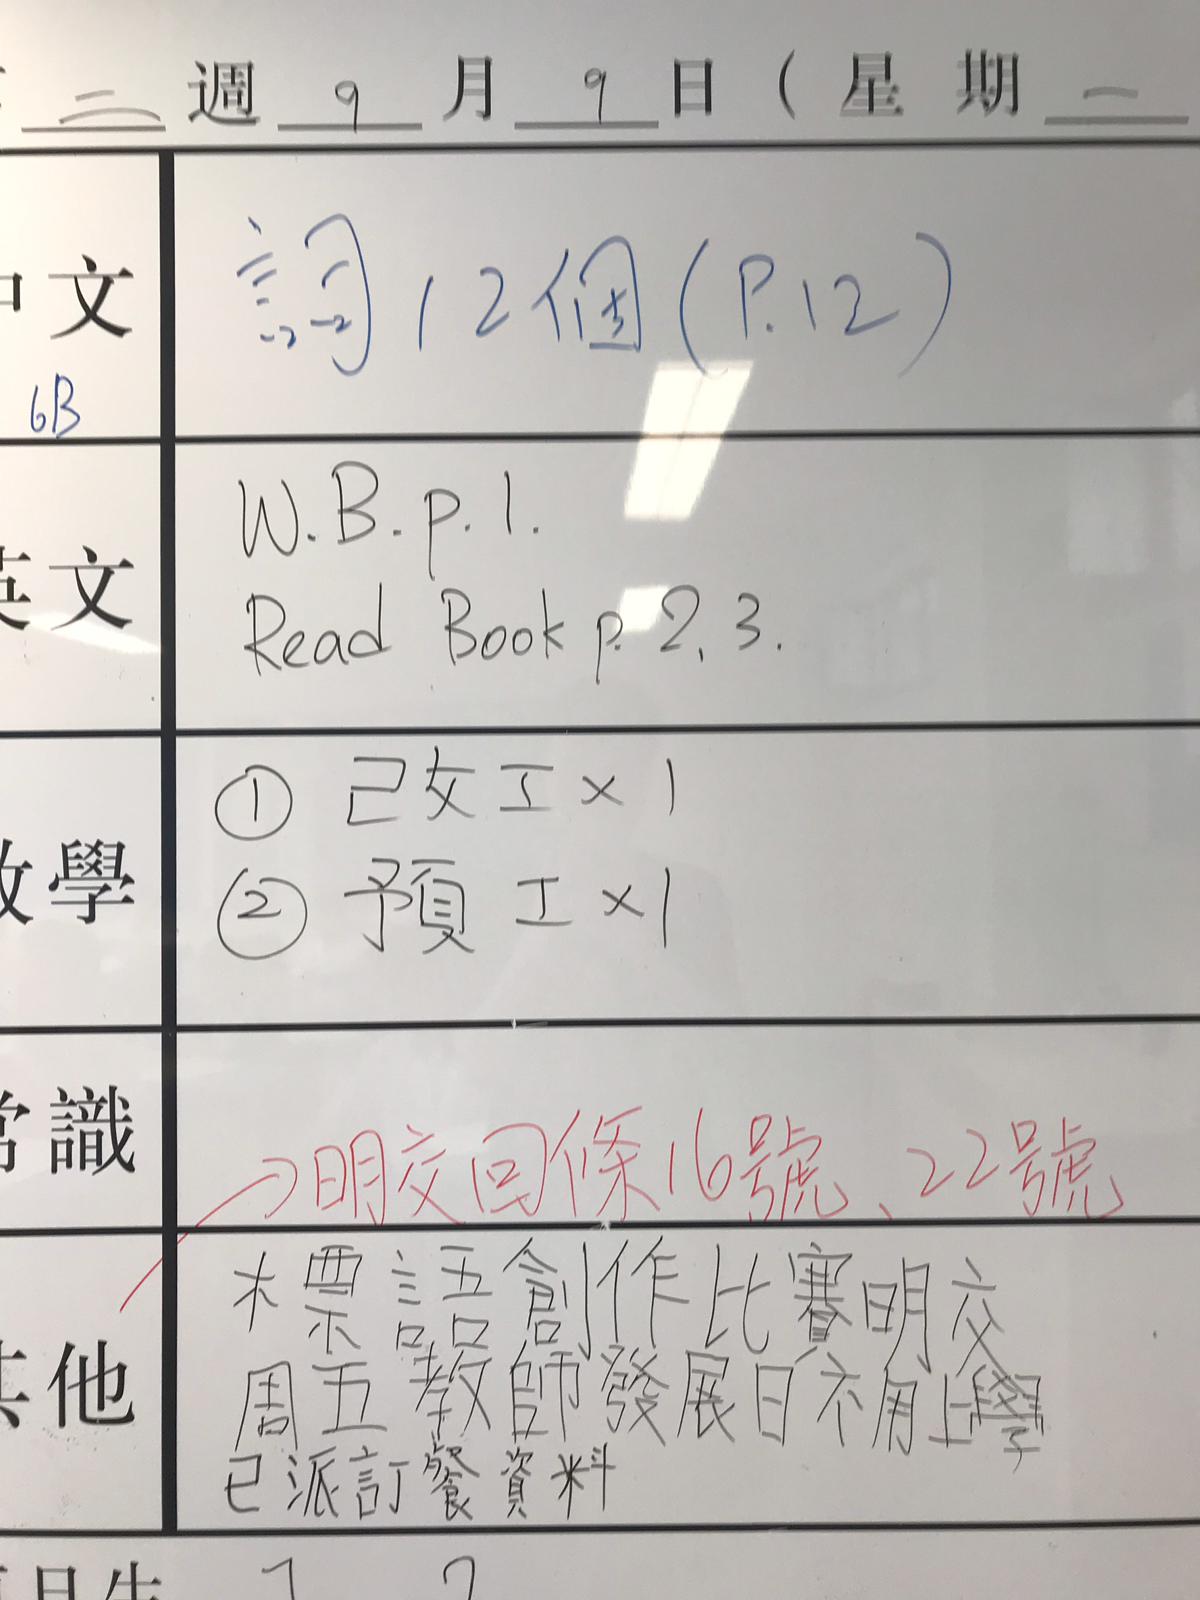 二 週 9 月 9 日 ( 星 期 一
中文 詞12個(P.12)
6B
英文 W.B.p.1.
Read Book p.2,3.
數學 ① 己改工×1
② 預工×1
常識 →明交回條16號、22號
其他 標語創作比賽明交
周五教師發展日不用上學
已派訂餐資料